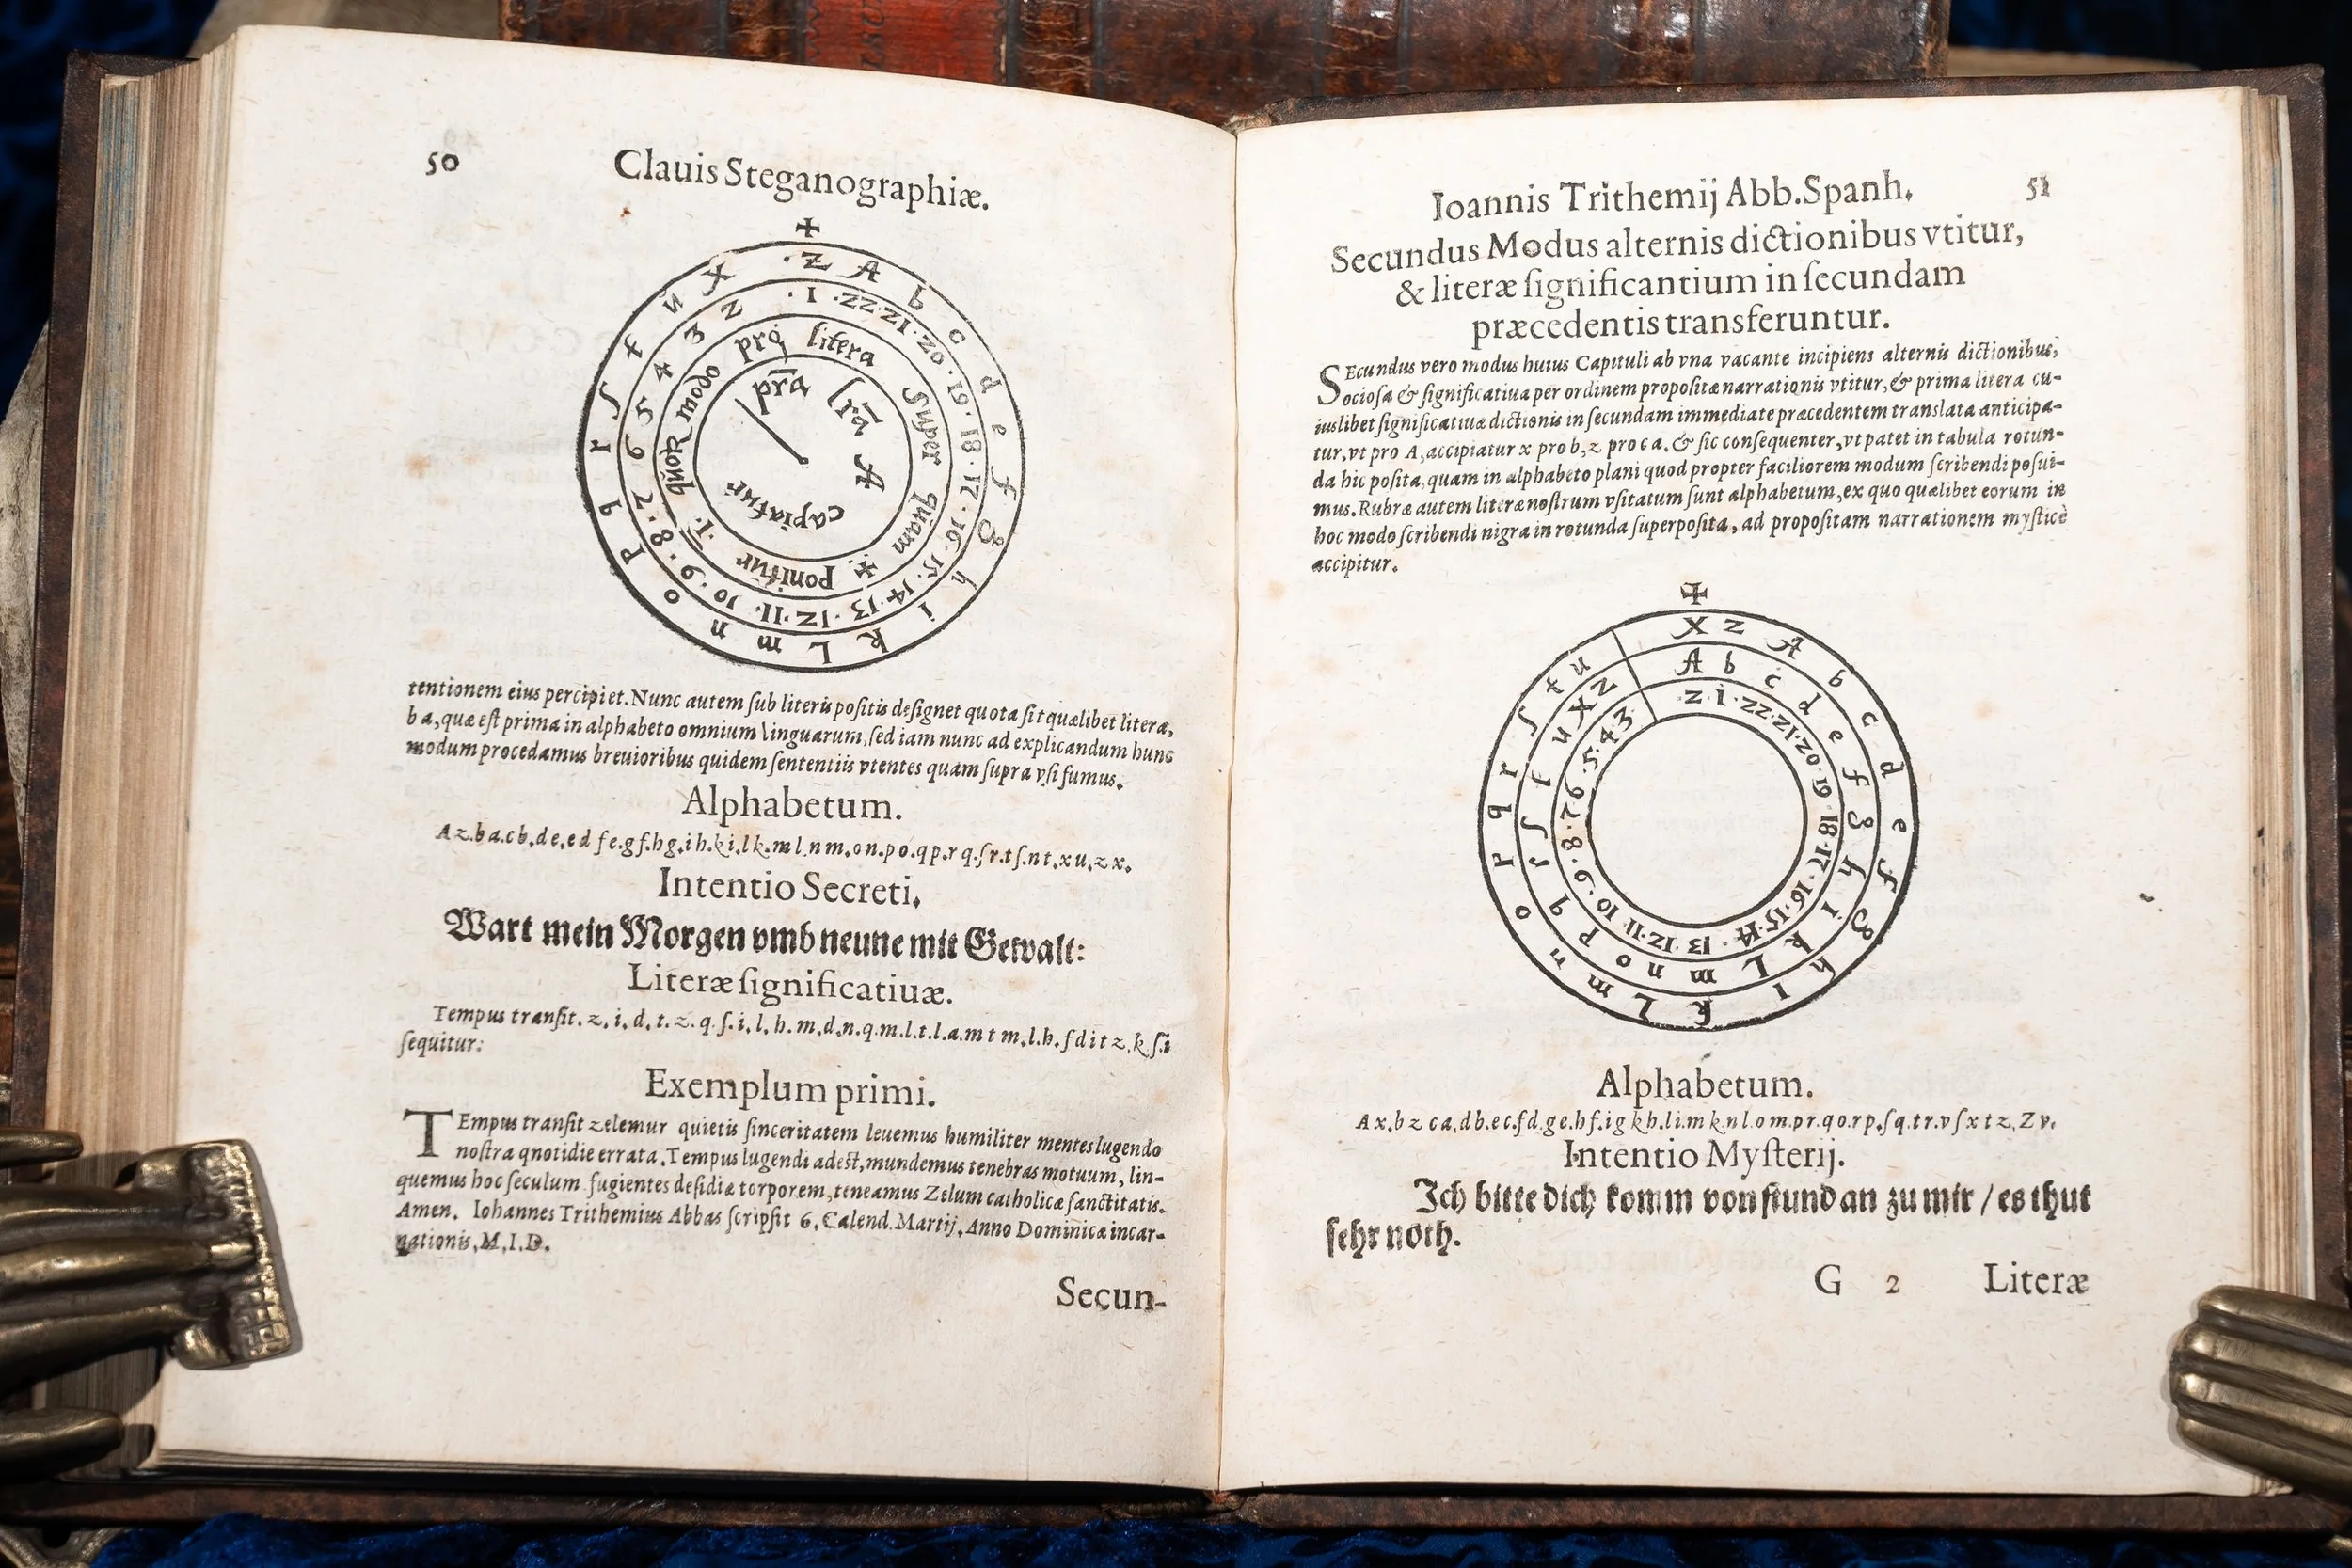 50
Clauis Steganographiæ.
✠
· z A b c d e f g h i k L m n o p q r ſ t u X
· 1 · 22 · 21 · 20 · 19 · 18 · 17 · 16 · 15 · 14 · 13 · 12 · 11 · 10 · 9 · 8 · 7 6 5 4 3 2
modo pro litera super quam ✠ ponitur
A capiatur
tentionem eius percipiet. Nunc autem ſub literis poſitis deſignet quota ſit quælibet litera,
b a, quæ eſt prima in alphabeto omnium linguarum, ſed iam nunc ad explicandum hunc
modum procedamus breuioribus quidem ſententiis vtentes quam ſupra vſi ſumus.
Alphabetum.
A z. b a. c b, d e, e d f e. g f. h g, i h. k i, l k. m l. n m, o n. p o. q p, r q. ſ r. t ſ. n t, x u, z x.
Intentio Secreti.
Wart mein Morgen vmb neune mit Gewalt:
Literæ ſignificatiuæ.
Tempus tranſit. z, i, d, t. z. q. ſ. i, l, h. m, d, n. q. m. l. t. l. a. m t m, l. h. f d i t z, k ſ. i
ſequitur:
Exemplum primi.
TEmpus tranſit zelemur quietis ſinceritatem leuemus humiliter mentes lugendo
noſtra qnotidie errata. Tempus lugendi adeſt, mundemus tenebras motuum, lin-
quemus hoc ſeculum fugientes deſidiæ torporem, teneamus Zelum catholicæ ſanctitatis.
Amen. Iohannes Trithemius Abbas ſcripſit 6. Calend. Martij, Anno Dominicæ incar-
nationis, M, I. D.
Secun-
Ioannis Trithemij Abb. Spanh.
51
Secundus Modus alternis dictionibus vtitur,
& literæ ſignificantium in ſecundam
præcedentis transferuntur.
SEcundus vero modus huius Capituli ab vna vacante incipiens alternis dictionibus,
ocioſa & ſignificatiua per ordinem propoſitæ narrationis vtitur, & prima litera cu-
iuslibet ſignificatiuæ dictionis in ſecundam immediate præcedentem translata anticipa-
tur, vt pro A, accipiatur x pro b, z pro c a, & ſic conſequenter, vt patet in tabula rotun-
da hic poſita, quam in alphabeto plani quod propter faciliorem modum ſcribendi poſui-
mus. Rubræ autem literæ noſtrum vſitatum ſunt alphabetum, ex quo quælibet eorum in
hoc modo ſcribendi nigra in rotunda ſuperpoſita, ad propoſitam narrationem myſticè
accipitur.
✠
X z A b c d e f g h i k L m n o p q r ſ t u
A b c d e f g h i k L m n o p q r ſ t u X z
2 · 1 · 22 · 21 · 20 · 19 · 18 · 17 · 16 · 15 · 14 · 13 · 12 · 11 · 10 · 9 · 8 · 7 6 · 5 · 4 3 ·
Alphabetum.
A x. b z c a, d b. e c. f d. g e. h f. i g k h. l i. m k n l. o m. p r. q o. r p. ſ q. t r. v ſ x t z, Z v.
Intentio Myſterij.
Ich bitte dich komm von ſtund an zu mir / es thut
ſehr noth.
G 2
Literæ